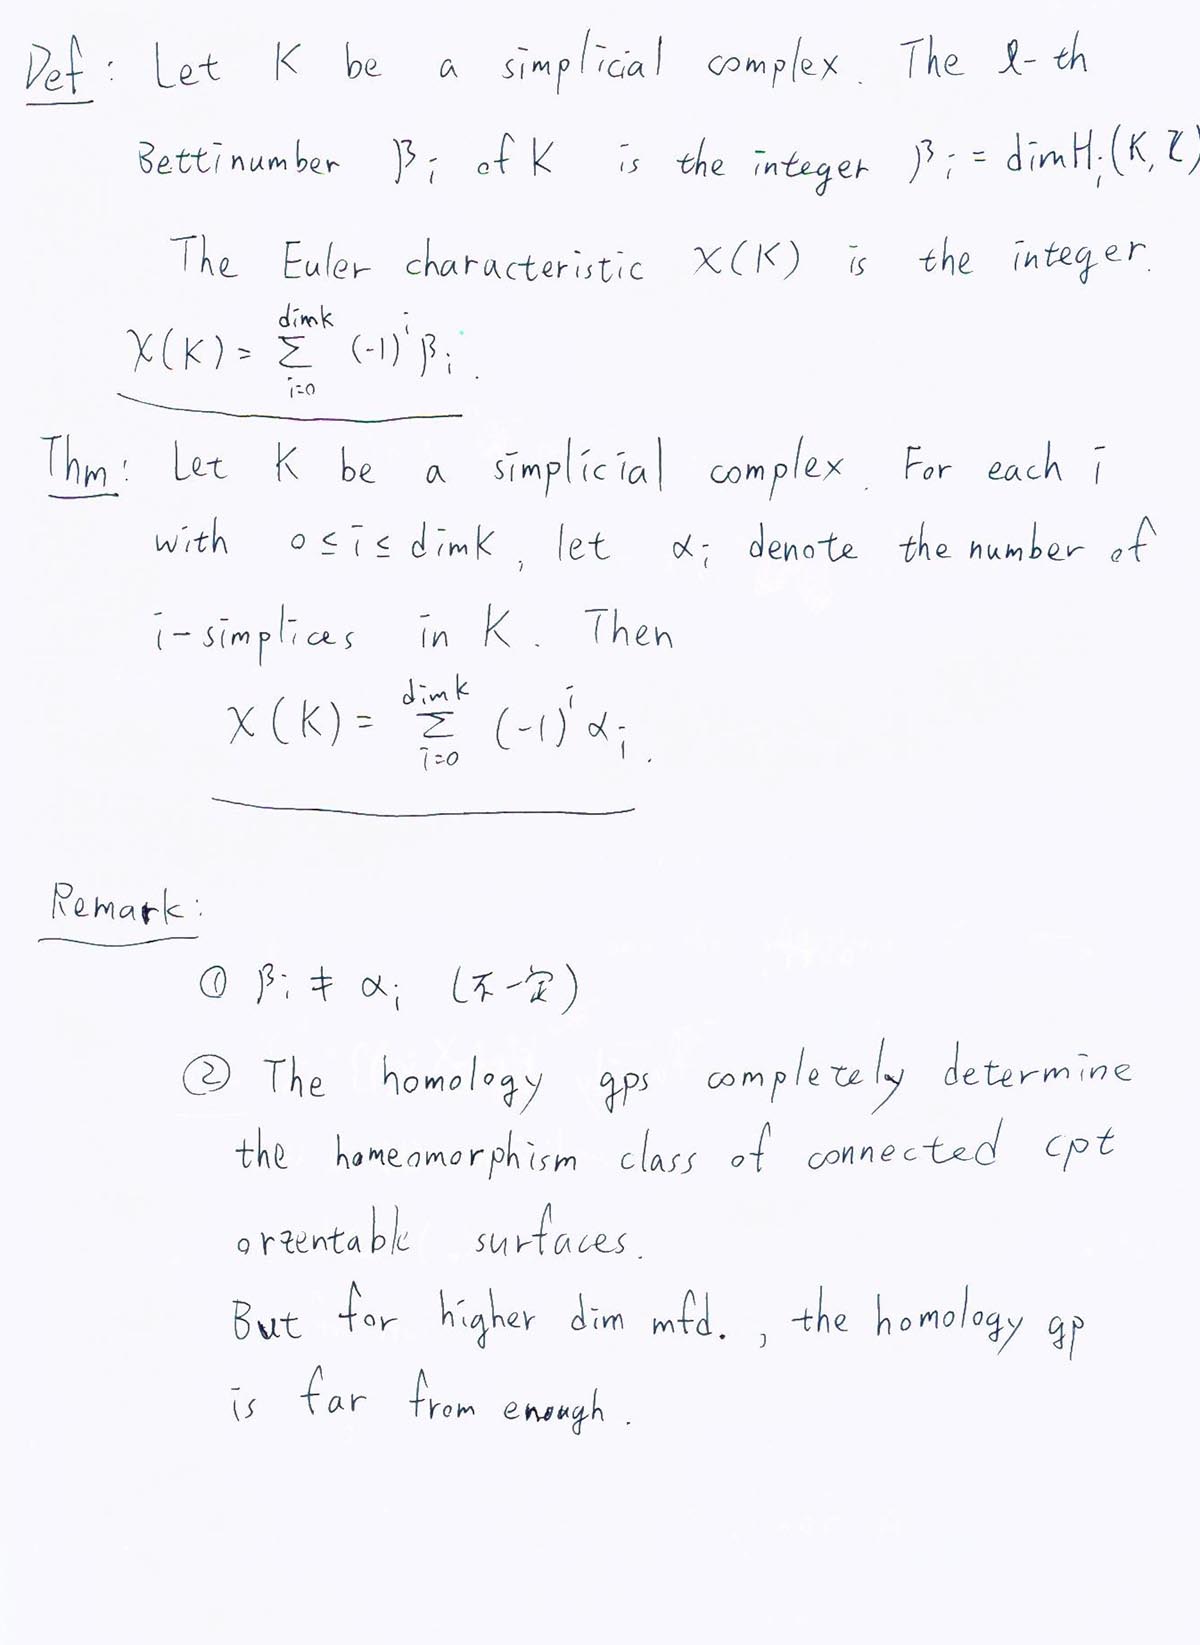 Def: Let K be a simplicial complex. The l-th
Betti number βᵢ of K is the integer βᵢ = dim Hᵢ(K, Z)
The Euler characteristic χ(K) is the integer.
χ(K) = Σ_{i=0}^{dim K} (-1)^i βᵢ.
Thm: Let K be a simplicial complex. For each i
with 0 ≤ i ≤ dim K, let αᵢ denote the number of
i-simplices in K. Then
χ(K) = Σ_{i=0}^{dim K} (-1)^i αᵢ.
Remark:
① βᵢ ≠ αᵢ (不一定)
② The homology gps completely determine
the homeomorphism class of connected cpt
orientable surfaces.
But for higher dim mfd., the homology gp
is far from enough.